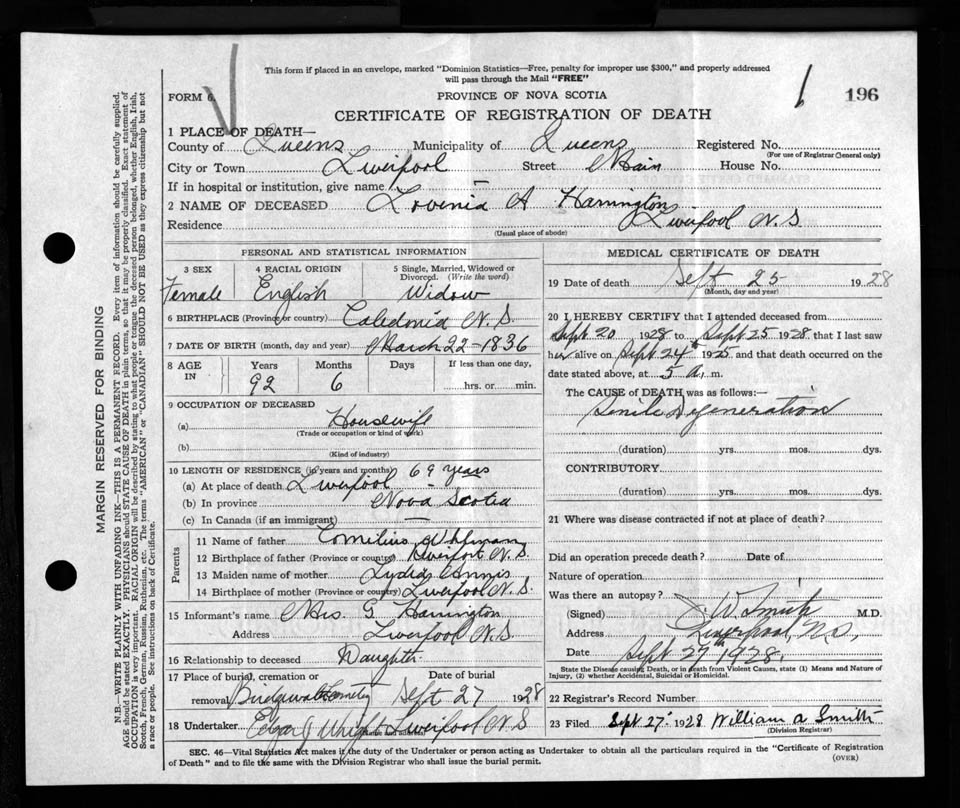 This form if placed in an envelope, marked "Dominion Statistics—Free, penalty for improper use $300," and properly addressed
will pass through the Mail "FREE"
FORM 6.
PROVINCE OF NOVA SCOTIA
196
CERTIFICATE OF REGISTRATION OF DEATH
1 PLACE OF DEATH—
County of Queens Municipality of Queens Registered No.
(For use of Registrar General only)
City or Town Liverpool Street Main House No.
If in hospital or institution, give name —
2 NAME OF DECEASED Lovenia A Harrington
Residence Liverpool N. S
(Usual place of abode)
PERSONAL AND STATISTICAL INFORMATION
3 SEX 4 RACIAL ORIGIN 5 Single, Married, Widowed or
Divorced. (Write the word)
Female English Widow
6 BIRTHPLACE (Province or country) Caledonia N. S.
7 DATE OF BIRTH (month, day and year) March 22 - 1836
8 AGE IN Years Months Days If less than one day,
92 6 hrs. or min.
9 OCCUPATION OF DECEASED
(a) Housewife
(Trade or occupation or kind of work)
(b)
(Kind of industry)
10 LENGTH OF RESIDENCE (in years and months) 69 years
(a) At place of death Liverpool
(b) In province Nova Scotia
(c) In Canada (if an immigrant) —
Parents
11 Name of father Cornelius
12 Birthplace of father (Province or country) N. S.
13 Maiden name of mother Lydia Annis
14 Birthplace of mother (Province or country) Liverpool N. S.
15 Informant's name Mrs. G. Harrington
Address Liverpool N. S
16 Relationship to deceased Daughter
17 Place of burial, cremation or Date of burial
removal Sept 27 1928
18 Undertaker Edgar J Wright Liverpool N S
MEDICAL CERTIFICATE OF DEATH
19 Date of death Sept 25 1928
(Month, day and year)
20 I HEREBY CERTIFY that I attended deceased from
Sept 20 1928 to Sept 25 1928 that I last saw
her alive on Sept 24 1928 and that death occurred on the
date stated above, at 5 a. m.
The CAUSE OF DEATH was as follows:
Senile Degeneration
(duration) yrs. mos. dys.
CONTRIBUTORY
(duration) yrs. mos. dys.
21 Where was disease contracted if not at place of death?
Did an operation precede death? Date of
Nature of operation
Was there an autopsy?
(Signed) J. W. Smith M.D.
Address Liverpool, N.S.
Date Sept 27 1928.
State the Disease causing Death, or in death from Violent Causes, state (1) Means and Nature of
Injury, (2) whether Accidental, Suicidal or Homicidal.
22 Registrar's Record Number
23 Filed Sept 27 1928 William A Smith
(Division Registrar)
SEC. 46—Vital Statistics Act makes it the duty of the Undertaker or person acting as Undertaker to obtain all the particulars required in the "Certificate of Registration
of Death" and to file the same with the Division Registrar who shall issue the burial permit.
(OVER)
MARGIN RESERVED FOR BINDING
N.B.—WRITE PLAINLY WITH UNFADING INK—THIS IS A PERMANENT RECORD. Every item of information should be carefully supplied.
AGE should be stated EXACTLY. PHYSICIANS should STATE CAUSE OF DEATH in plain terms, so that it may be properly classified. Exact statement of
OCCUPATION is very important. RACIAL ORIGIN will be described by stating to what people or tongue the deceased person belonged, whether English, Irish,
Scotch, French, German, Russian, Ruthenian, etc. The terms "AMERICAN" or "CANADIAN" SHOULD NOT BE USED as they express citizenship but not
a race or people. See instructions on back of Certificate.